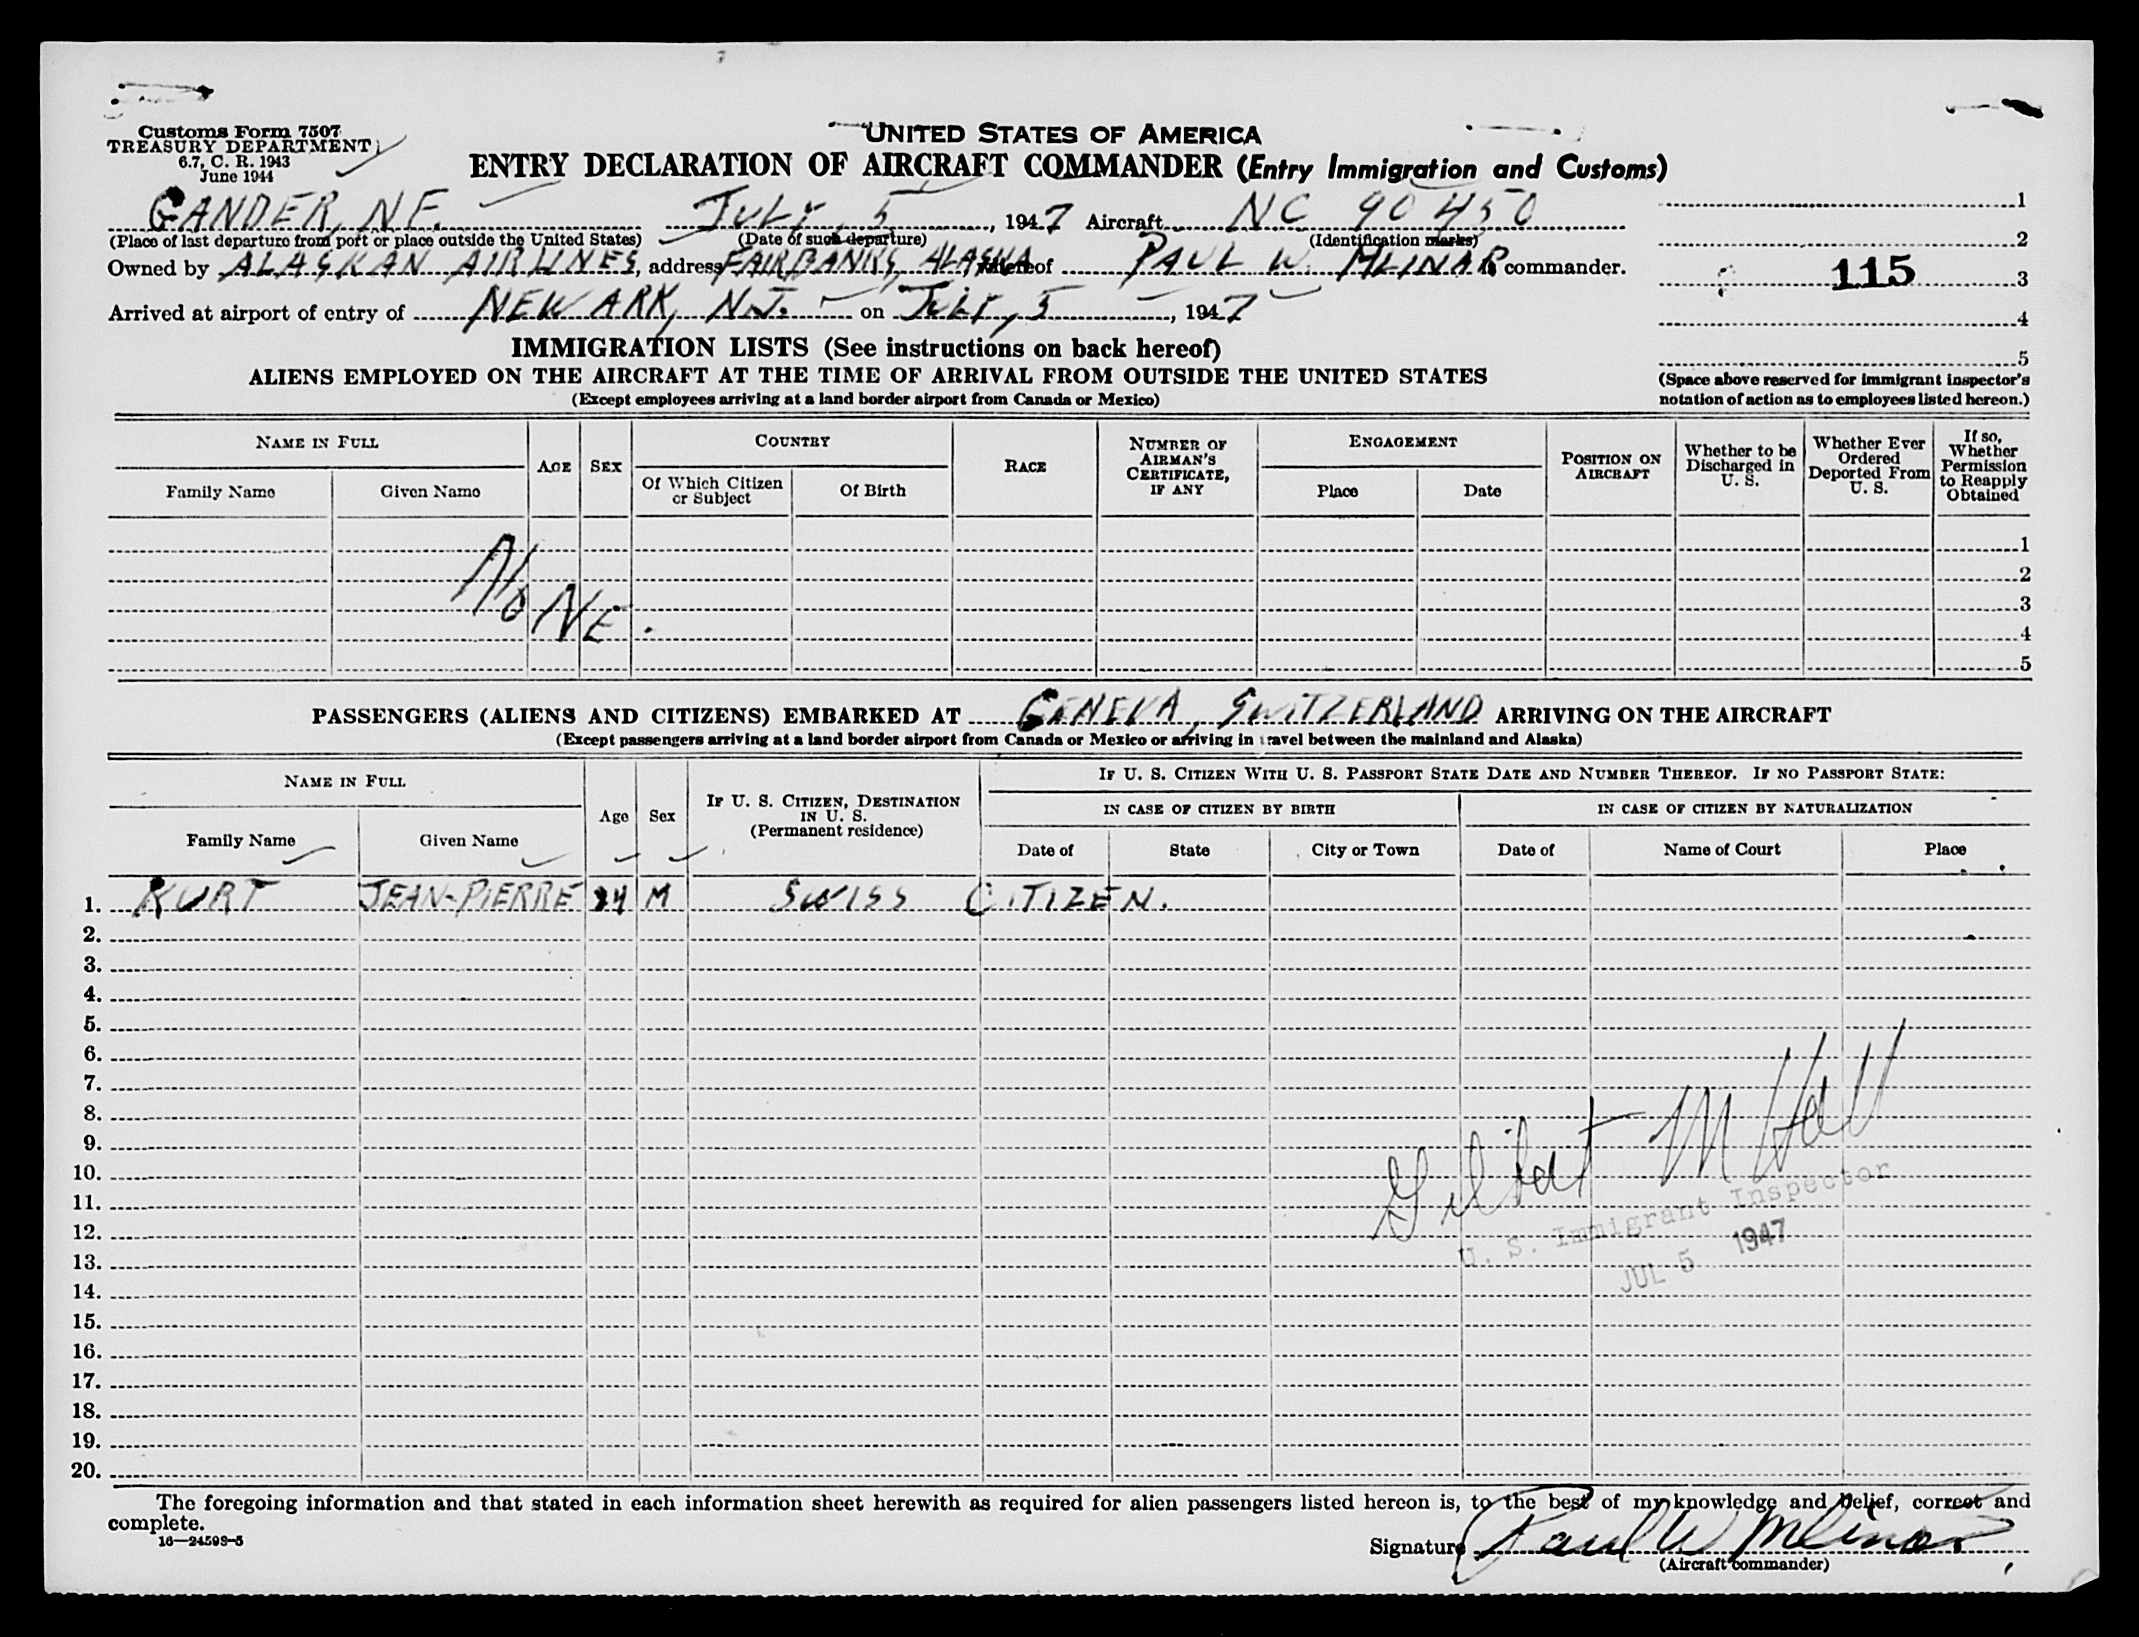 Customs Form 7507
TREASURY DEPARTMENT
6.7, C. R. 1943
June 1944
UNITED STATES OF AMERICA
ENTRY DECLARATION OF AIRCRAFT COMMANDER (Entry Immigration and Customs)
GANDER, N.F. JULY, 5, 1947 Aircraft NC 90450
(Place of last departure from port or place outside the United States) (Date of such departure) (Identification marks)
Owned by ALASKAN AIRLINES, address FAIRBANKS, ALASKA, whereof PAUL W. MLINAR is commander.
Arrived at airport of entry of NEWARK, N.J. on JULY, 5, 1947
1
2
115 3
4
5
(Space above reserved for immigrant inspector's
notation of action as to employees listed hereon.)
IMMIGRATION LISTS (See instructions on back hereof)
ALIENS EMPLOYED ON THE AIRCRAFT AT THE TIME OF ARRIVAL FROM OUTSIDE THE UNITED STATES
(Except employees arriving at a land border airport from Canada or Mexico)
NAME IN FULL
Family Name Given Name
AGE SEX
COUNTRY
Of Which Citizen or Subject Of Birth
RACE
NUMBER OF AIRMAN'S CERTIFICATE, IF ANY
ENGAGEMENT
Place Date
POSITION ON AIRCRAFT
Whether to be Discharged in U. S.
Whether Ever Ordered Deported From U. S.
If so, Whether Permission to Reapply Obtained
1
2
3
4
5
NONE.
PASSENGERS (ALIENS AND CITIZENS) EMBARKED AT GENEVA, SWITZERLAND ARRIVING ON THE AIRCRAFT
(Except passengers arriving at a land border airport from Canada or Mexico or arriving in travel between the mainland and Alaska)
NAME IN FULL
Family Name Given Name
Age Sex
IF U. S. CITIZEN, DESTINATION IN U. S.
(Permanent residence)
IF U. S. CITIZEN WITH U. S. PASSPORT STATE DATE AND NUMBER THEREOF. IF NO PASSPORT STATE:
IN CASE OF CITIZEN BY BIRTH IN CASE OF CITIZEN BY NATURALIZATION
Date of State City or Town Date of Name of Court Place
1. KURT JEAN-PIERRE 24 M SWISS CITIZEN.
2.
3.
4.
5.
6.
7.
8.
9.
10.
11.
12.
13.
14.
15.
16.
17.
18.
19.
20.
Gilbert M Hall
U. S. Immigrant Inspector
JUL 5 1947
The foregoing information and that stated in each information sheet herewith as required for alien passengers listed hereon is, to the best of my knowledge and belief, correct and
complete.
16—24598-5
Signature Paul W Mlinar
(Aircraft commander)